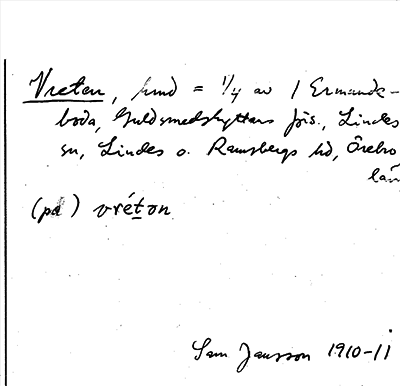 Vreten, hmd = 1/4 av 1 Ermands-
boda, Guldsmedshyttans jbs., Lindes
sn, Lindes o. Ramsbergs hd, Örebro
län
(på) vréton
Sam Jansson 1910-11